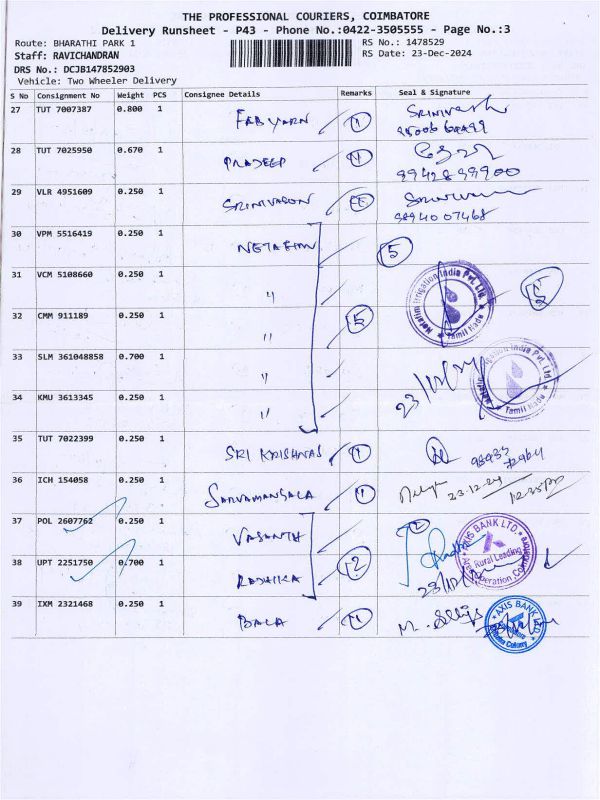 THE PROFESSIONAL COURIERS, COIMBATORE
Delivery Runsheet - P43 - Phone No.:0422-3505555 - Page No.:3
Route: BHARATHI PARK 1
RS No.: 1478529
Staff: RAVICHANDRAN
RS Date: 23-Dec-2024
DRS No.: DCJB147852903
Vehicle: Two Wheeler Delivery
S No Consignment No Weight PCS Consignee Details Remarks Seal & Signature
27 TUT 7007387 0.800 1 FAB YARN 1 SRINIVASH
28 TUT 7025950 0.670 1 PRADEEP 1
99428 99900
29 VLR 4951609 0.250 1 SRINIVASON
98940 07468
30 VPM 5516419 0.250 1 NETAFIM 5
31 VCM 5108660 0.250 1 " Netafim Irrigation India Pvt. Ltd. Tamil Nadu
32 CMM 911189 0.250 1 " 5
33 SLM 361048858 0.700 1 " Netafim Irrigation India Pvt. Ltd. Tamil Nadu
34 KMU 3613345 0.250 1 " 23/12/24
35 TUT 7022399 0.250 1 SRI KRISHNAS 1
36 ICH 154058 0.250 1 SARVAMANGALA 1 23-12-24 12:35
37 POL 2607762 0.250 1 VASANTH 2 AXIS BANK LTD. Rural Lending
38 UPT 2251750 0.700 1 RADHIKA 2 23/12/
39 IXM 2321468 0.250 1 BALA 1 AXIS BANK LTD. Colony